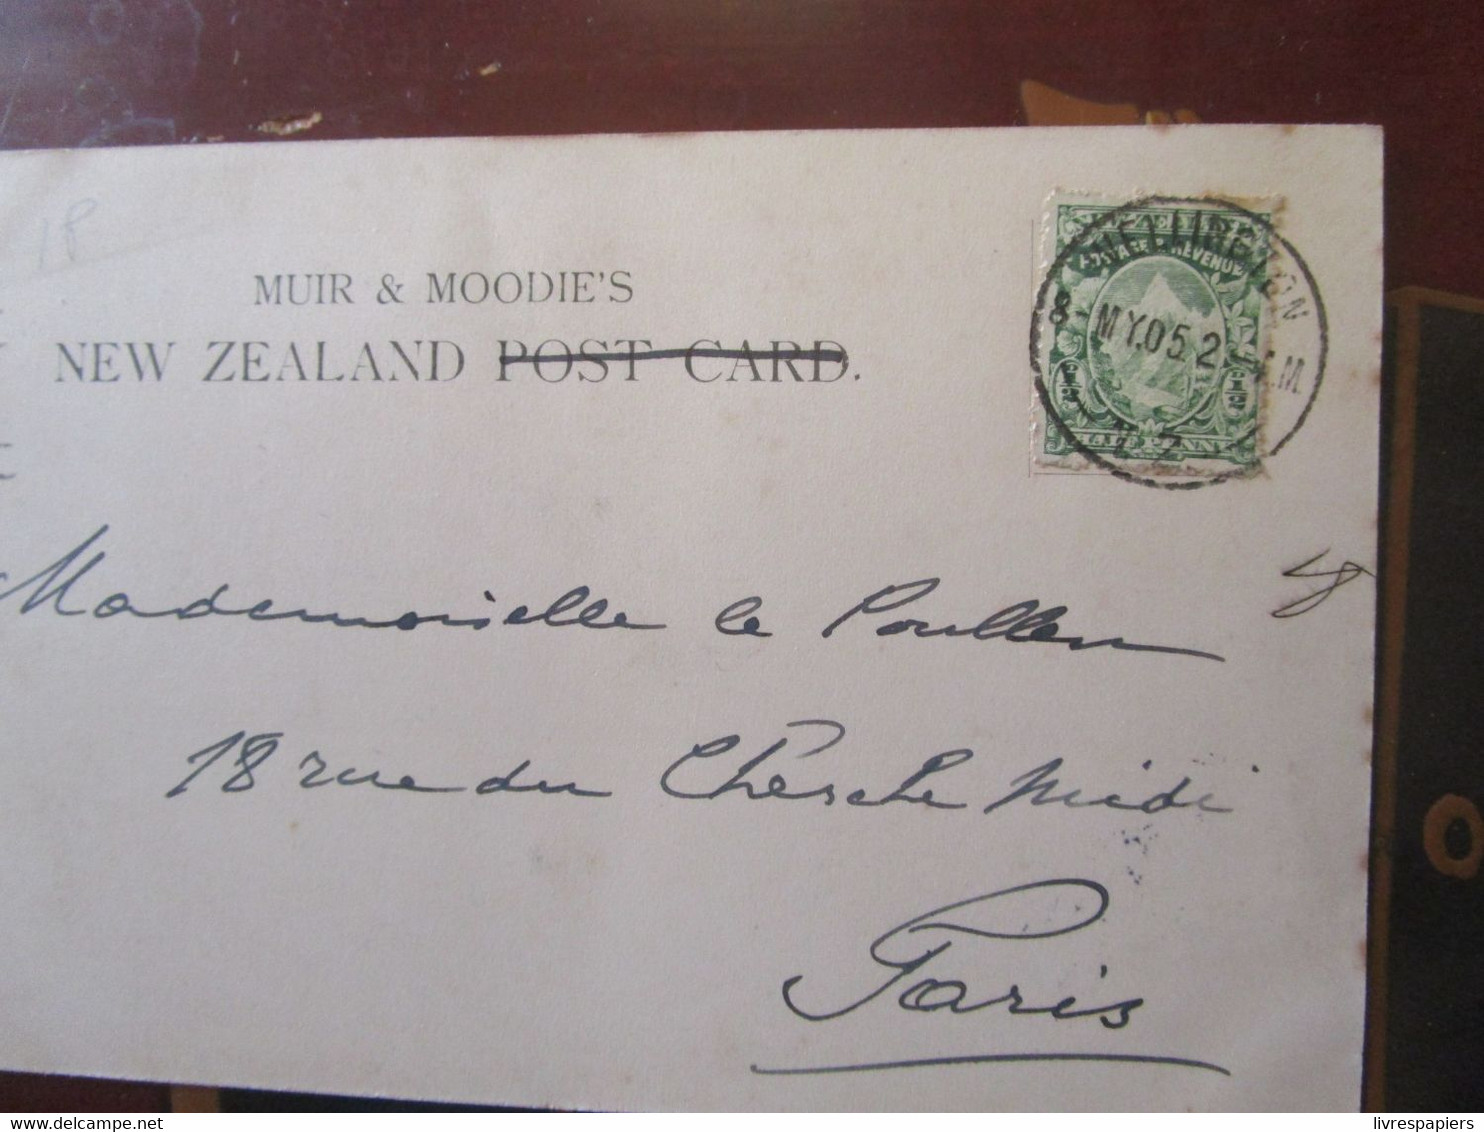 18
MUIR & MOODIE'S
NEW ZEALAND POST CARD.
POSTAGE & REVENUE
½ ½
HALF PENNY
WELLINGTON
8-MY.05 2
N Z
Mademoiselle le Poullen
18 rue du Cherche Midi
Paris
livrespapiers
delcampe.net